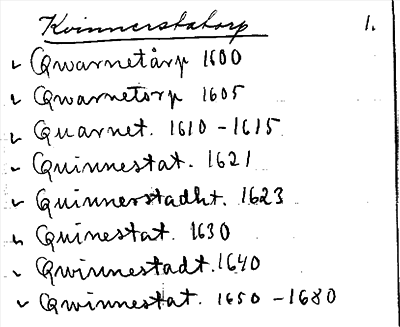 Kvinnerstatorp 1.
Qwarnetårp 1600
Qwarnetorp 1605
Quarnet. 1610-1615
Quinnestat. 1621
Quinnerstadht. 1623
Quinestat. 1630
Qwinnestadt. 1640
Qwinnestat. 1650-1680